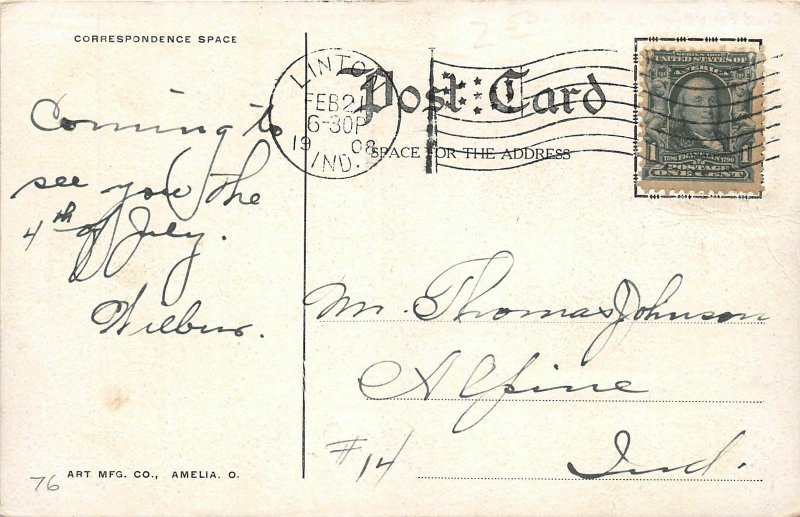 2 50
CORRESPONDENCE SPACE
Post Card
SPACE FOR THE ADDRESS
LINTON
FEB 21
6-30P
1908
IND.
SERIES 1902
UNITED STATES OF
AMERICA
1706 FRANKLIN 1790
1
POSTAGE
ONE CENT
Coming to
see you the
4th of July.
Wilbur.
Mr. Thomas Johnson
Alpine
#14
Ind.
76
ART MFG. CO., AMELIA. O.